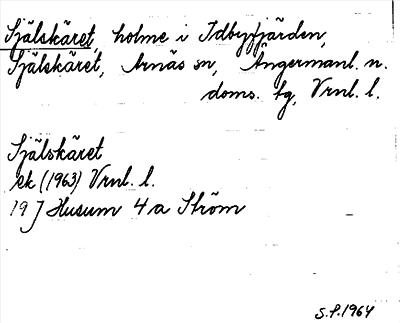 Själskäret, holme i Idbyfjärden,
Själskäret, Arnäs sn, Ångermanl. n.
doms. tg, Vrnl. l.
Själskäret
ek (1963) Vrnl. l.
19 J Husum 4 a Ström
S.P. 1964